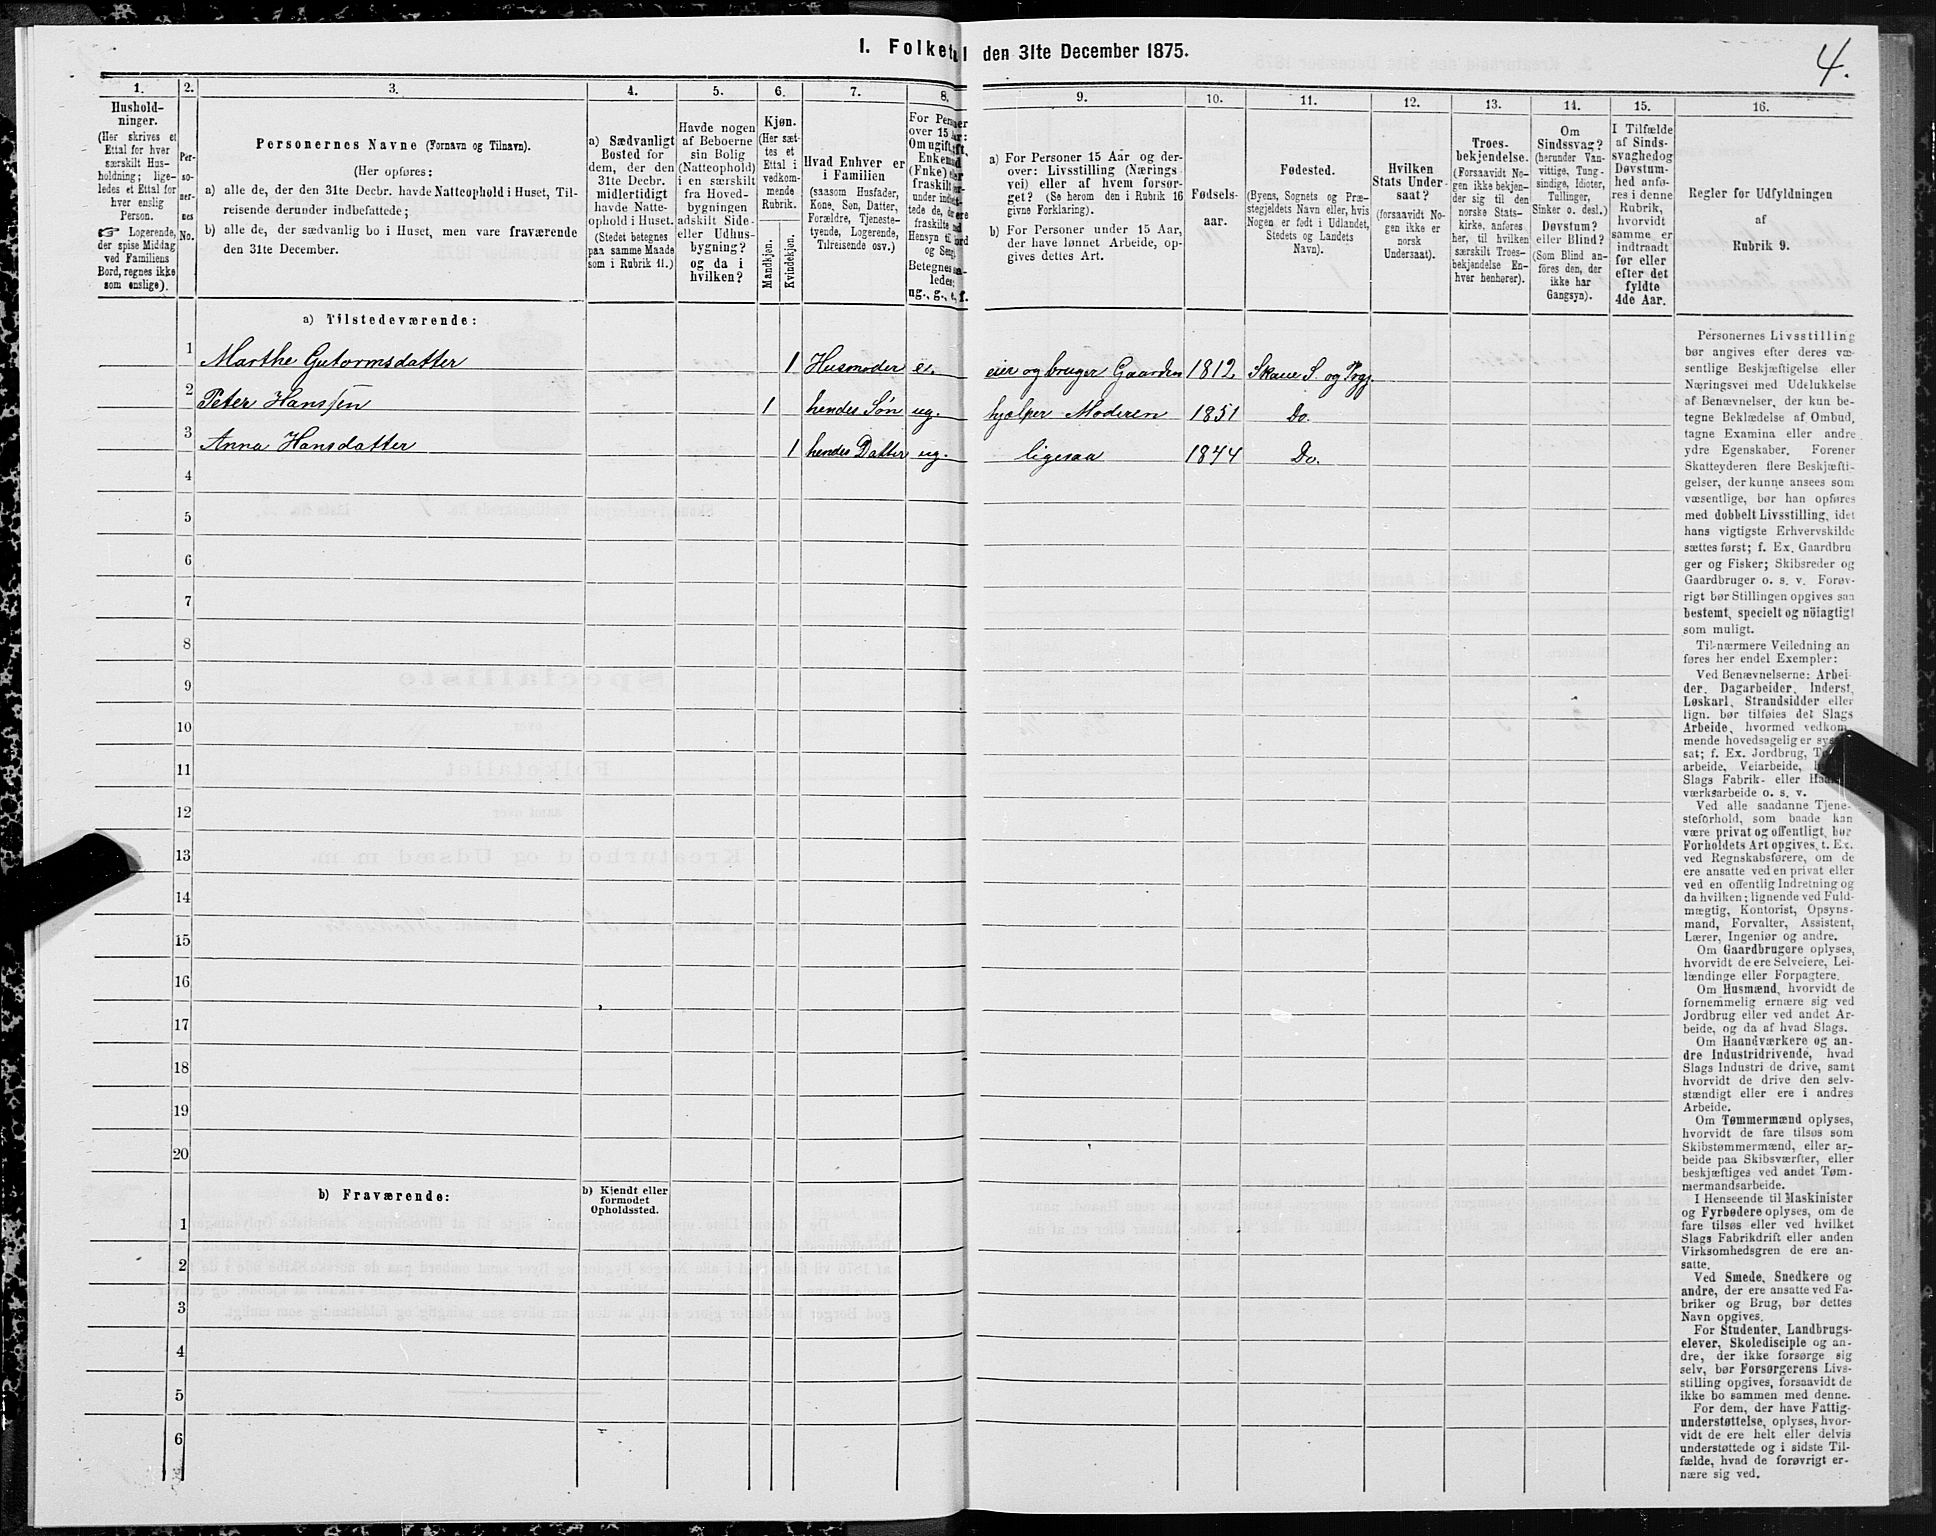 I. Folketal den 31te December 1875.
4.
1.
2.
3.
4.
5.
6.
7.
8.
9.
10.
11.
12.
13.
14.
15.
16.
Hushold-
ninger.
(Her skrives et
Ettal for hver
særskilt Hus-
holdning; lige-
ledes et Ettal for
hver enslig
Person.
☞ Logerende,
der spise Middag
ved Familiens
Bord, regnes ikke
som enslige).
Per-
so-
ner-
nes
No.
Personernes Navne (Fornavn og Tilnavn).
(Her opføres:
a) alle de, der den 31te Decbr. havde Natteophold i Huset, Til-
reisende derunder indbefattede;
b) alle de, der sædvanlig bo i Huset, men vare fraværende
den 31te December.
a) Sædvanligt
Bosted for
dem, der den
31te Decbr.
midlertidigt
havde Natte-
ophold i Huset.
(Stedet betegnes
paa samme Maade
som i Rubrik 11.)
Havde nogen
af Beboerne
sin Bolig
(Natteophold)
i en særskilt
fra Hoved-
bygningen
adskilt Side-
eller Udhus-
bygning?
og da i
hvilken?
Kjøn.
(Her sæt-
tes et
Ettal i
vedkom-
mende
Rubrik.
Mandkjøn.
Kvindekjøn.
Hvad Enhver er
i Familien
(saasom Husfader,
Kone, Søn, Datter,
Forældre, Tjeneste-
tyende, Logerende,
Tilreisende osv.)
For Personer
over 15 Aar:
Om ugift, gift,
Enkemand
(Enke) eller
fraskilt
ug., g., e., f.
a) For Personer 15 Aar og der-
over: Livsstilling (Nærings
vei) eller af hvem forsør-
get? (Se herom den i Rubrik 16
givne Forklaring).
b) For Personer under 15 Aar,
der have lønnet Arbeide, op-
gives dettes Art.
Fødsels-
aar.
Fødested.
(Byens, Sognets og Præ-
stegjeldets Navn eller, hvis
Nogen er født i Udlandet,
Stedets og Landets
Navn).
Hvilken
Stats Under-
saat?
(forsaavidt No-
gen ikke er
norsk
Undersaat).
Troes-
bekjendelse.
(Forsaavidt No-
gen ikke bekjen-
der sig til den
norske Stats-
kirke, anføres
her, til hvilken
særskilt Troes-
bekjendelse En-
hver henhører).
Om
Sindssvag?
(herunder Van-
vittige, Tung-
sindige, Idioter,
Tullinger,
Sinker o. desl.)
Døvstum?
eller Blind?
(Som Blind an-
føres den, der
ikke har
Gangsyn).
I Tilfælde
af Sinds-
svaghed og
Døvstum-
hed anfø-
res i denne
Rubrik,
hvorvidt
samme er
indtraadt
før eller
efter det
fyldte
4de Aar.
Regler for Udfyldningen
af
Rubrik 9.
a) Tilstedeværende:
1 Marthe Gutormsdatter 1 Husmoder e. eier og bruger Gaarden 1812 Skaue S. og Prgj.
2 Peter Hanssen 1 hendes Søn ug. hjelper Moderen 1851 Do.
3 Anna Hansdatter 1 hendes Datter ug. ligesaa 1844 Do.
4
5
6
7
8
9
10
11
12
13
14
15
16
17
18
19
20
b) Fraværende:
b) Kjendt eller
formodet
Opholdssted.
1
2
3
4
5
6
Personernes Livsstilling
bør angives efter deres væ-
sentlige Beskjæftigelse eller
Næringsvei med Udelukkelse
af Benævnelser, der kun be-
tegne Beklædelse af Ombud,
tagne Examina eller andre
ydre Egenskaber. Forener
Skatteyderen flere Beskjæfti-
gelser, der kunne ansees som
væsentlige, bør han opføres
med dobbelt Livsstilling, idet
hans vigtigste Erhvervskilde
sættes først; f. Ex. Gaardbru
ger og Fisker; Skibsreder og
Gaardbruger o. s. v. Forøv-
rigt bør Stillingen opgives saa
bestemt, specielt og nöiagtigt
som muligt.
Til nærmere Veiledning an
føres her endel Exempler:
Ved Benævnelserne: Arbei-
der, Dagarbeider, Inderst,
Løskarl, Strandsidder eller
lign. bør tilføies det Slags
Arbeide, hvormed vedkom-
mende hovedsagelig er syssel-
sat; f. Ex. Jordbrug,
arbeide, Veiarbeide,
Slags Fabrik- eller Haand-
værksarbeide o. s. v.
Ved alle saadanne Tjene-
steforhold, som baade kan
være privat og offentligt, bør
Forholdets Art opgives, t. Ex.
ved Regnskabsførere, om de
ere ansatte ved en privat eller
ved en offentlig Indretning og
da hvilken; lignende ved Fuld-
mægtig, Kontorist, Opsyns-
mand, Forvalter, Assistent,
Lærer, Ingeniør og andre.
Om Gaardbrugere oplyses,
hvorvidt de ere Selveiere, Lei-
lændinge eller Forpagtere.
Om Husmænd, hvorvidt de
fornemmelig ernære sig ved
Jordbrug eller ved andet Ar-
beide, og da af hvad Slags.
Om Haandværkere og an-
dre Industridrivende, hvad
Slags Industri de drive, samt
hvorvidt de drive den selv-
stændigt eller ere i andres
Arbeide.
Om Tømmermænd oplyses,
hvorvidt de fare tilsøs som
Skibstømmermænd, eller ar-
beide paa Skibsværfter, eller
beskjæftiges ved andet Tøm-
mermandsarbeide.
I Henseende til Maskinister
og Fyrbødere oplyses, om de
fare tilsøs eller ved hvilket
Slags Fabrikdrift eller anden
Virksomhedsgren de ere an-
satte.
Ved Smede, Snedkere og
andre, der ere ansatte ved Fa-
briker og Brug, bør dettes
Navn opgives.
For Studenter, Landbrugs-
elever, Skoledisciple og an-
dre, der ikke forsørge sig
selv, bør Forsørgerens Livs-
stilling opgives, forsaavidt de
ikke bo sammen med denne.
For dem, der have Fattig-
understøttelse, oplyses, hvor-
vidt de ere helt eller delvis
understøttede og i sidste Til-
fælde, hvad de forøvrigt er-
nære sig ved.